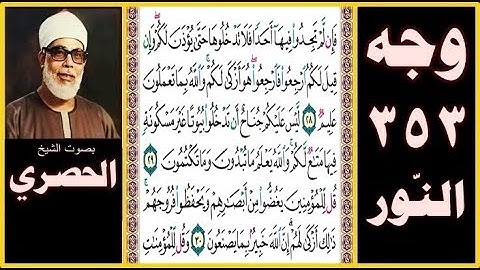 وجه
٣٥٣
النّور
فَإِن لَّمْ تَجِدُوا۟ فِيهَآ أَحَدًا فَلَا تَدْخُلُوهَا حَتَّىٰ يُؤْذَنَ لَكُمْ ۖ وَإِن
قِيلَ لَكُمُ ٱرْجِعُوا۟ فَٱرْجِعُوا۟ ۖ هُوَ أَزْكَىٰ لَكُمْ ۚ وَٱللَّهُ بِمَا تَعْمَلُونَ
عَلِيمٌ ٢٨ لَّيْسَ عَلَيْكُمْ جُنَاحٌ أَن تَدْخُلُوا۟ بُيُوتًا غَيْرَ مَسْكُونَةٍ
فِيهَا مَتَـٰعٌ لَّكُمْ ۚ وَٱللَّهُ يَعْلَمُ مَا تُبْدُونَ وَمَا تَكْتُمُونَ ٢٩
قُل لِّلْمُؤْمِنِينَ يَغُضُّوا۟ مِنْ أَبْصَـٰرِهِمْ وَيَحْفَظُوا۟ فُرُوجَهُمْ ۚ
ذَٰلِكَ أَزْكَىٰ لَهُمْ ۗ إِنَّ ٱللَّهَ خَبِيرٌۢ بِمَا يَصْنَعُونَ ٣٠ وَقُل لِّلْمُؤْمِنَـٰتِ
بصوت الشيخ
الحصري